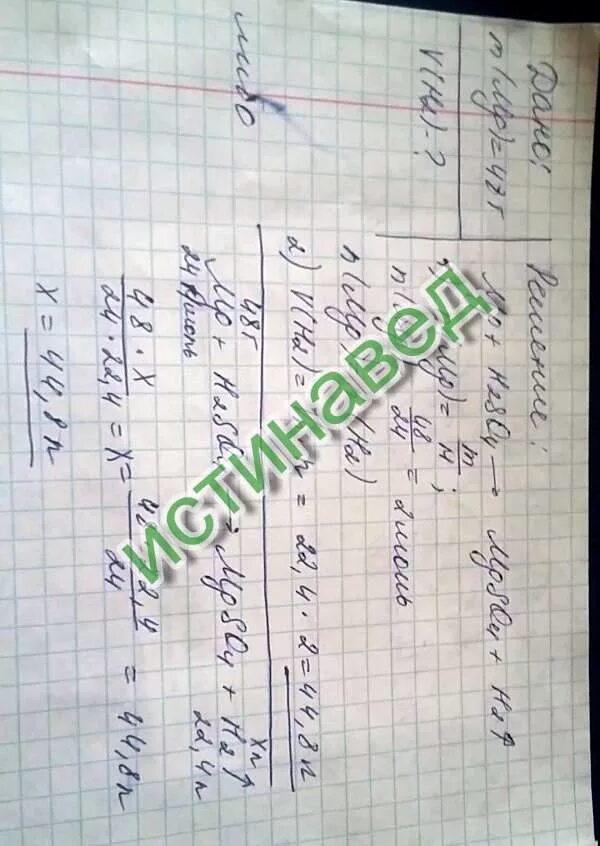 Дано:
m(Mg)=48г
V(H2)-?
Решение:
Mg + H2SO4 → MgSO4 + H2↑
= m/M;
48/24 = 2моль
n(Mg) (H2)
2) V(H2) = = 22,4 · 2 = 44,8л
либо
48г хл
Mg + H2SO4 → MgSO4 + H2↑
24г/моль 22,4л
48 · х / 24 · 22,4 = х = 48 2,4 / 24 = 44,8л
х = 44,8л
ИСТИНАВЕД